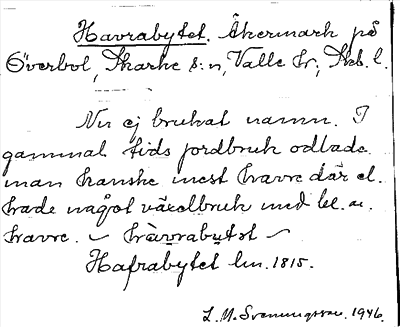 Havrabytet. Åkermark på
Överbol, Skarke s:n, Valle hr; Skb. l.
Nu ej brukat namn. I
gammal tids jordbruk odlade
man kanske mest havre där el.
hade något växelbruk med bl. a.
havre. ~ hàvrabytet ~
Hafrabytet lm. 1815.
L. M. Svenungsson. 1946.